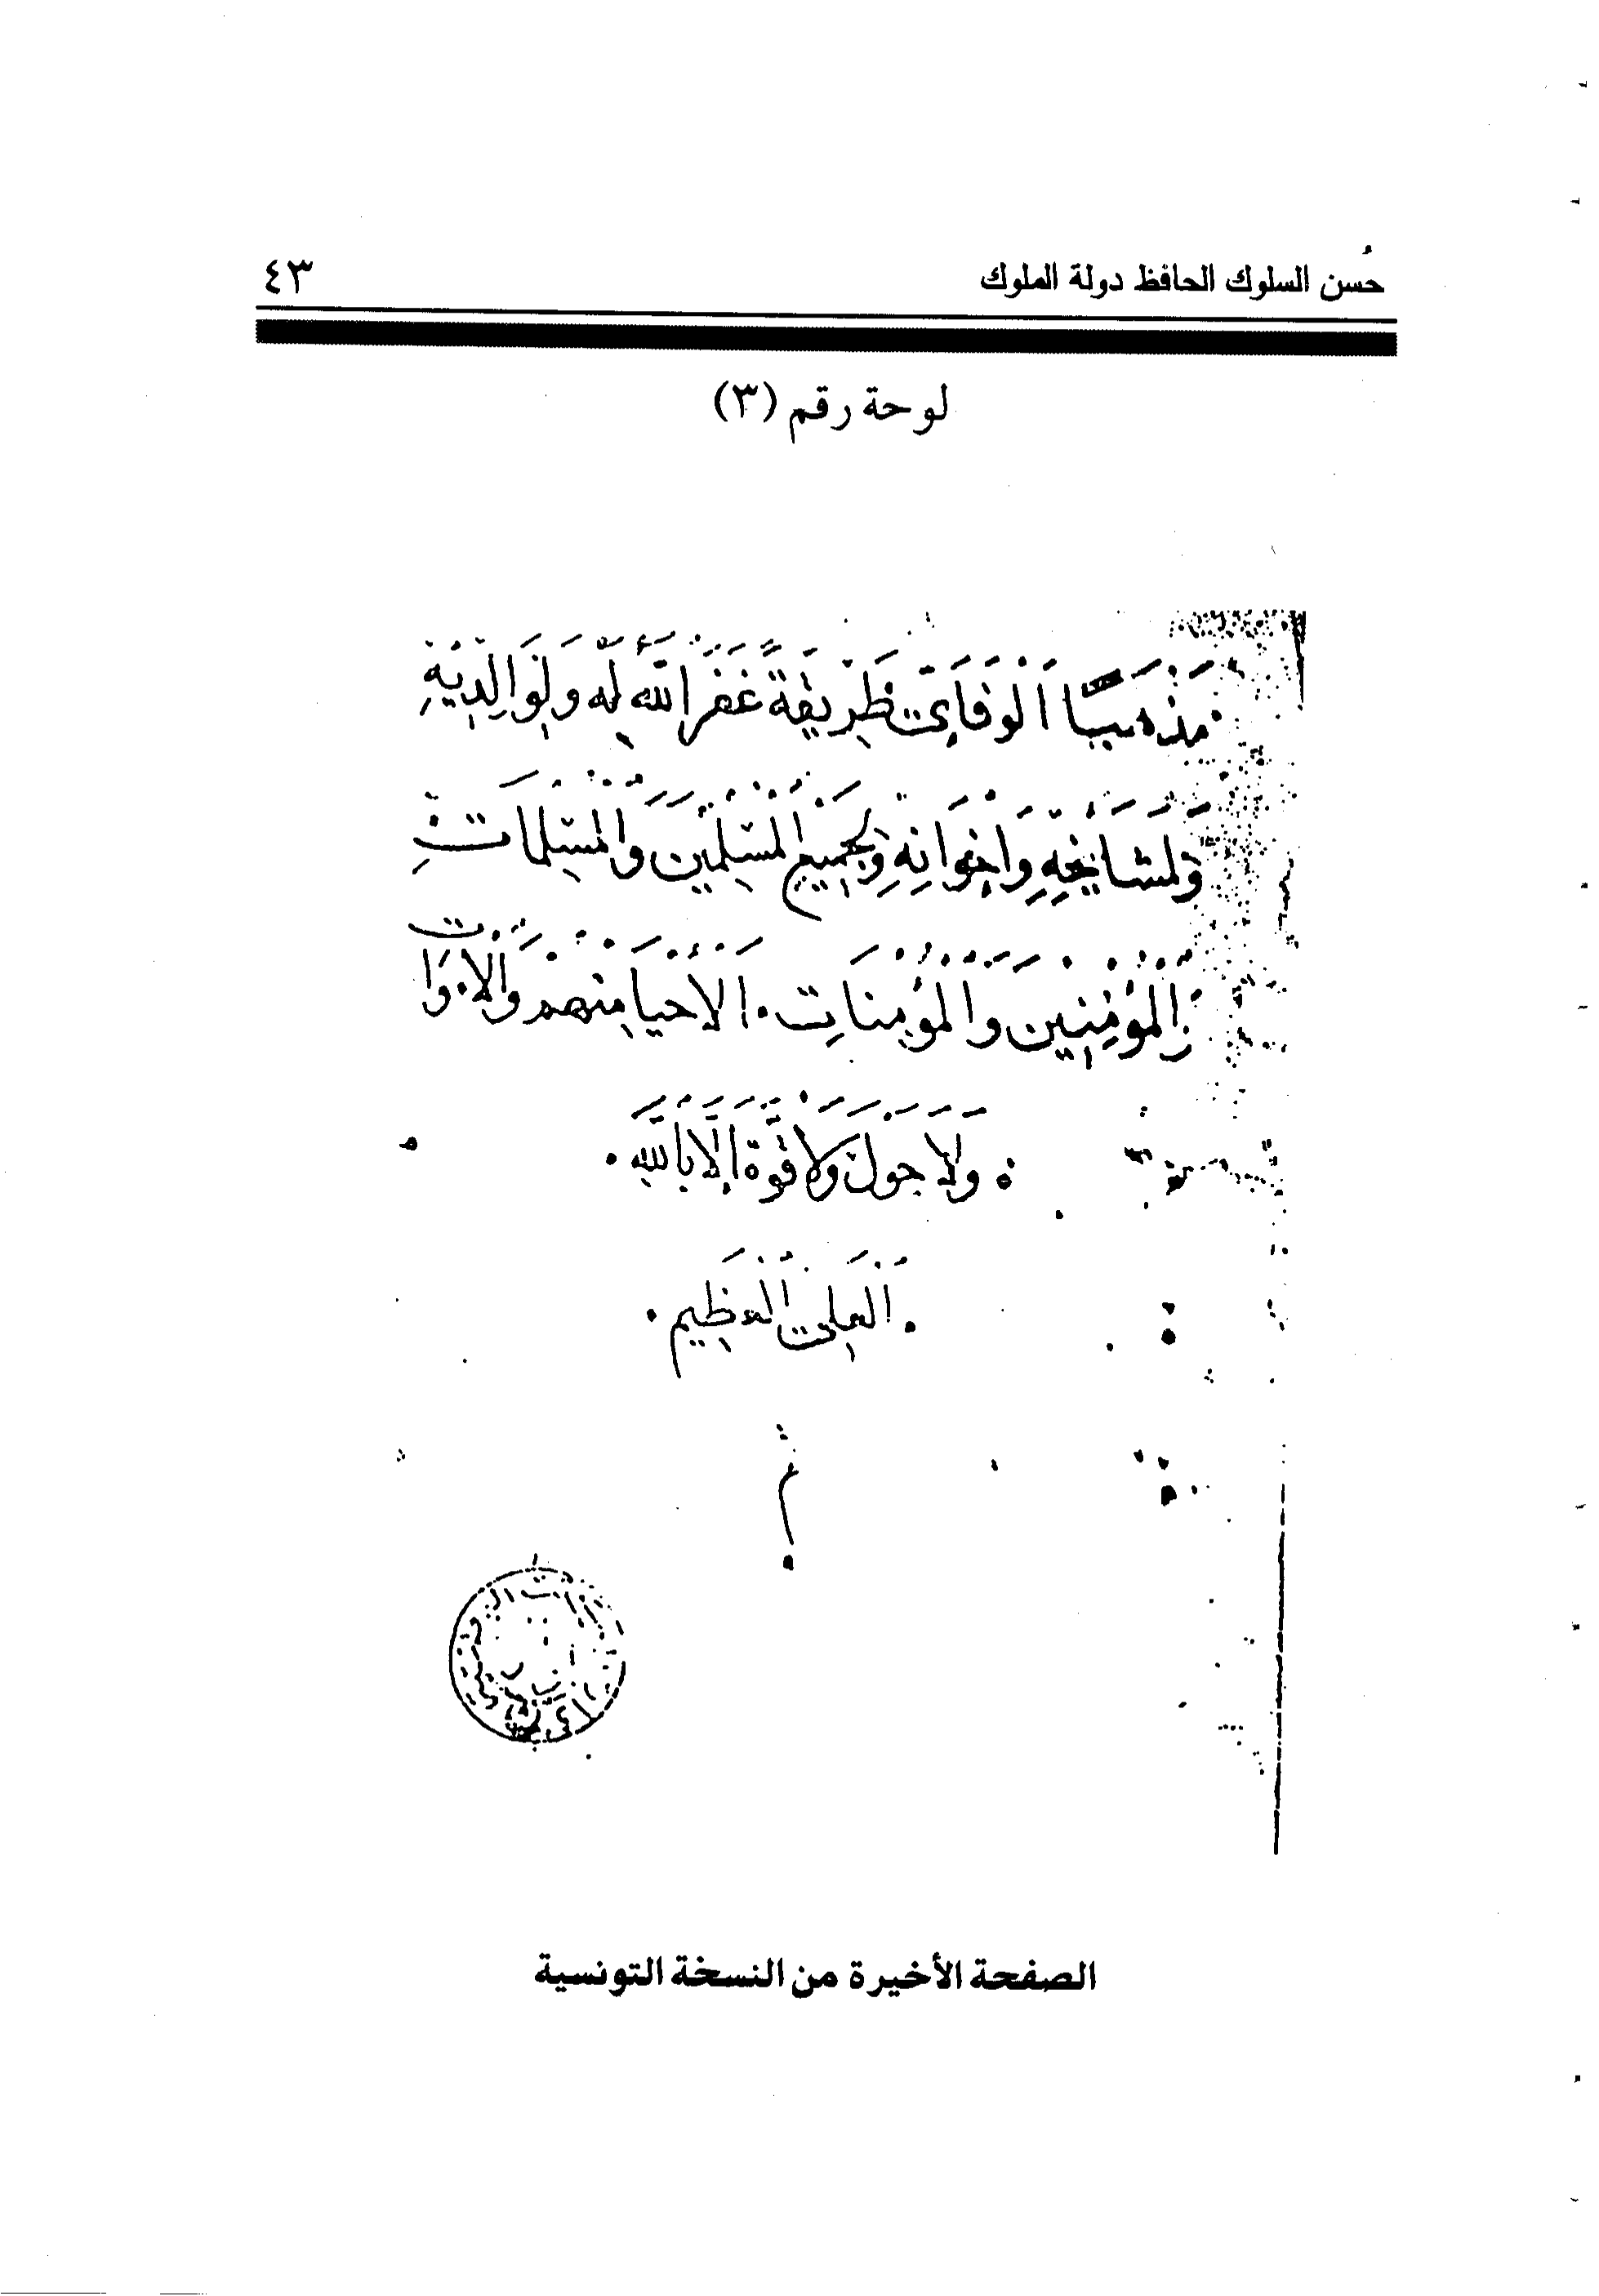 حُسن السلوك الحافظ دولة الملوك
٤٣
لوحة رقم (٣)
مَذْهَبًا اَلْوَفَائِيّ طَرِيقَةً غَفَرَ اللّٰهُ لَهُ وَلِوَالِدَيْهِ
وَلِمَشَايِخِهِ وَاِخْوَانِهِ وَلِجَمِيعِ الْمُسْلِمِينَ وَالْمُسْلِمَاتِ
وَالْمُؤْمِنِينَ وَالْمُؤْمِنَاتِ. اَلْاَحْيَا مِنْهُمْ وَالْاَمْوَات
وَلَا حَوْلَ وَلَا قُوَّةَ اِلَّا بِاللّٰهِ.
. اَلْعَلِيِّ الْعَظِيمِ .
م
الصفحة الأخيرة من النسخة التونسية